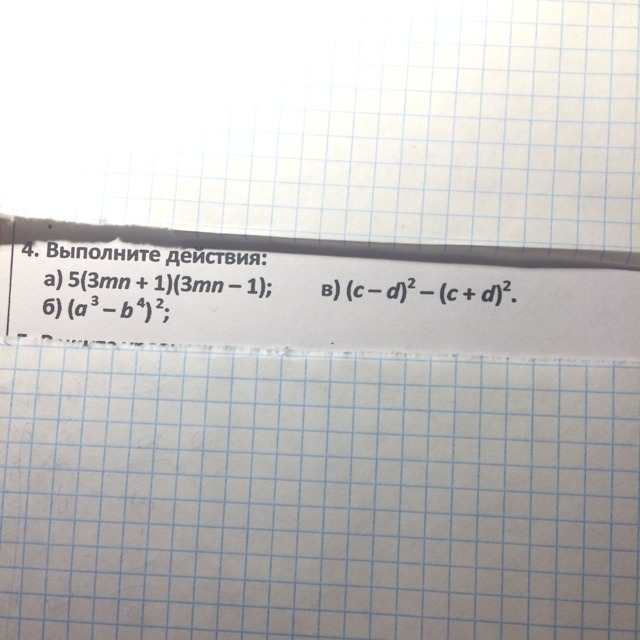 4. Выполните действия:
а) 5(3mn + 1)(3mn – 1);
в) (c – d)² – (c + d)².
б) (a³ – b⁴)²;